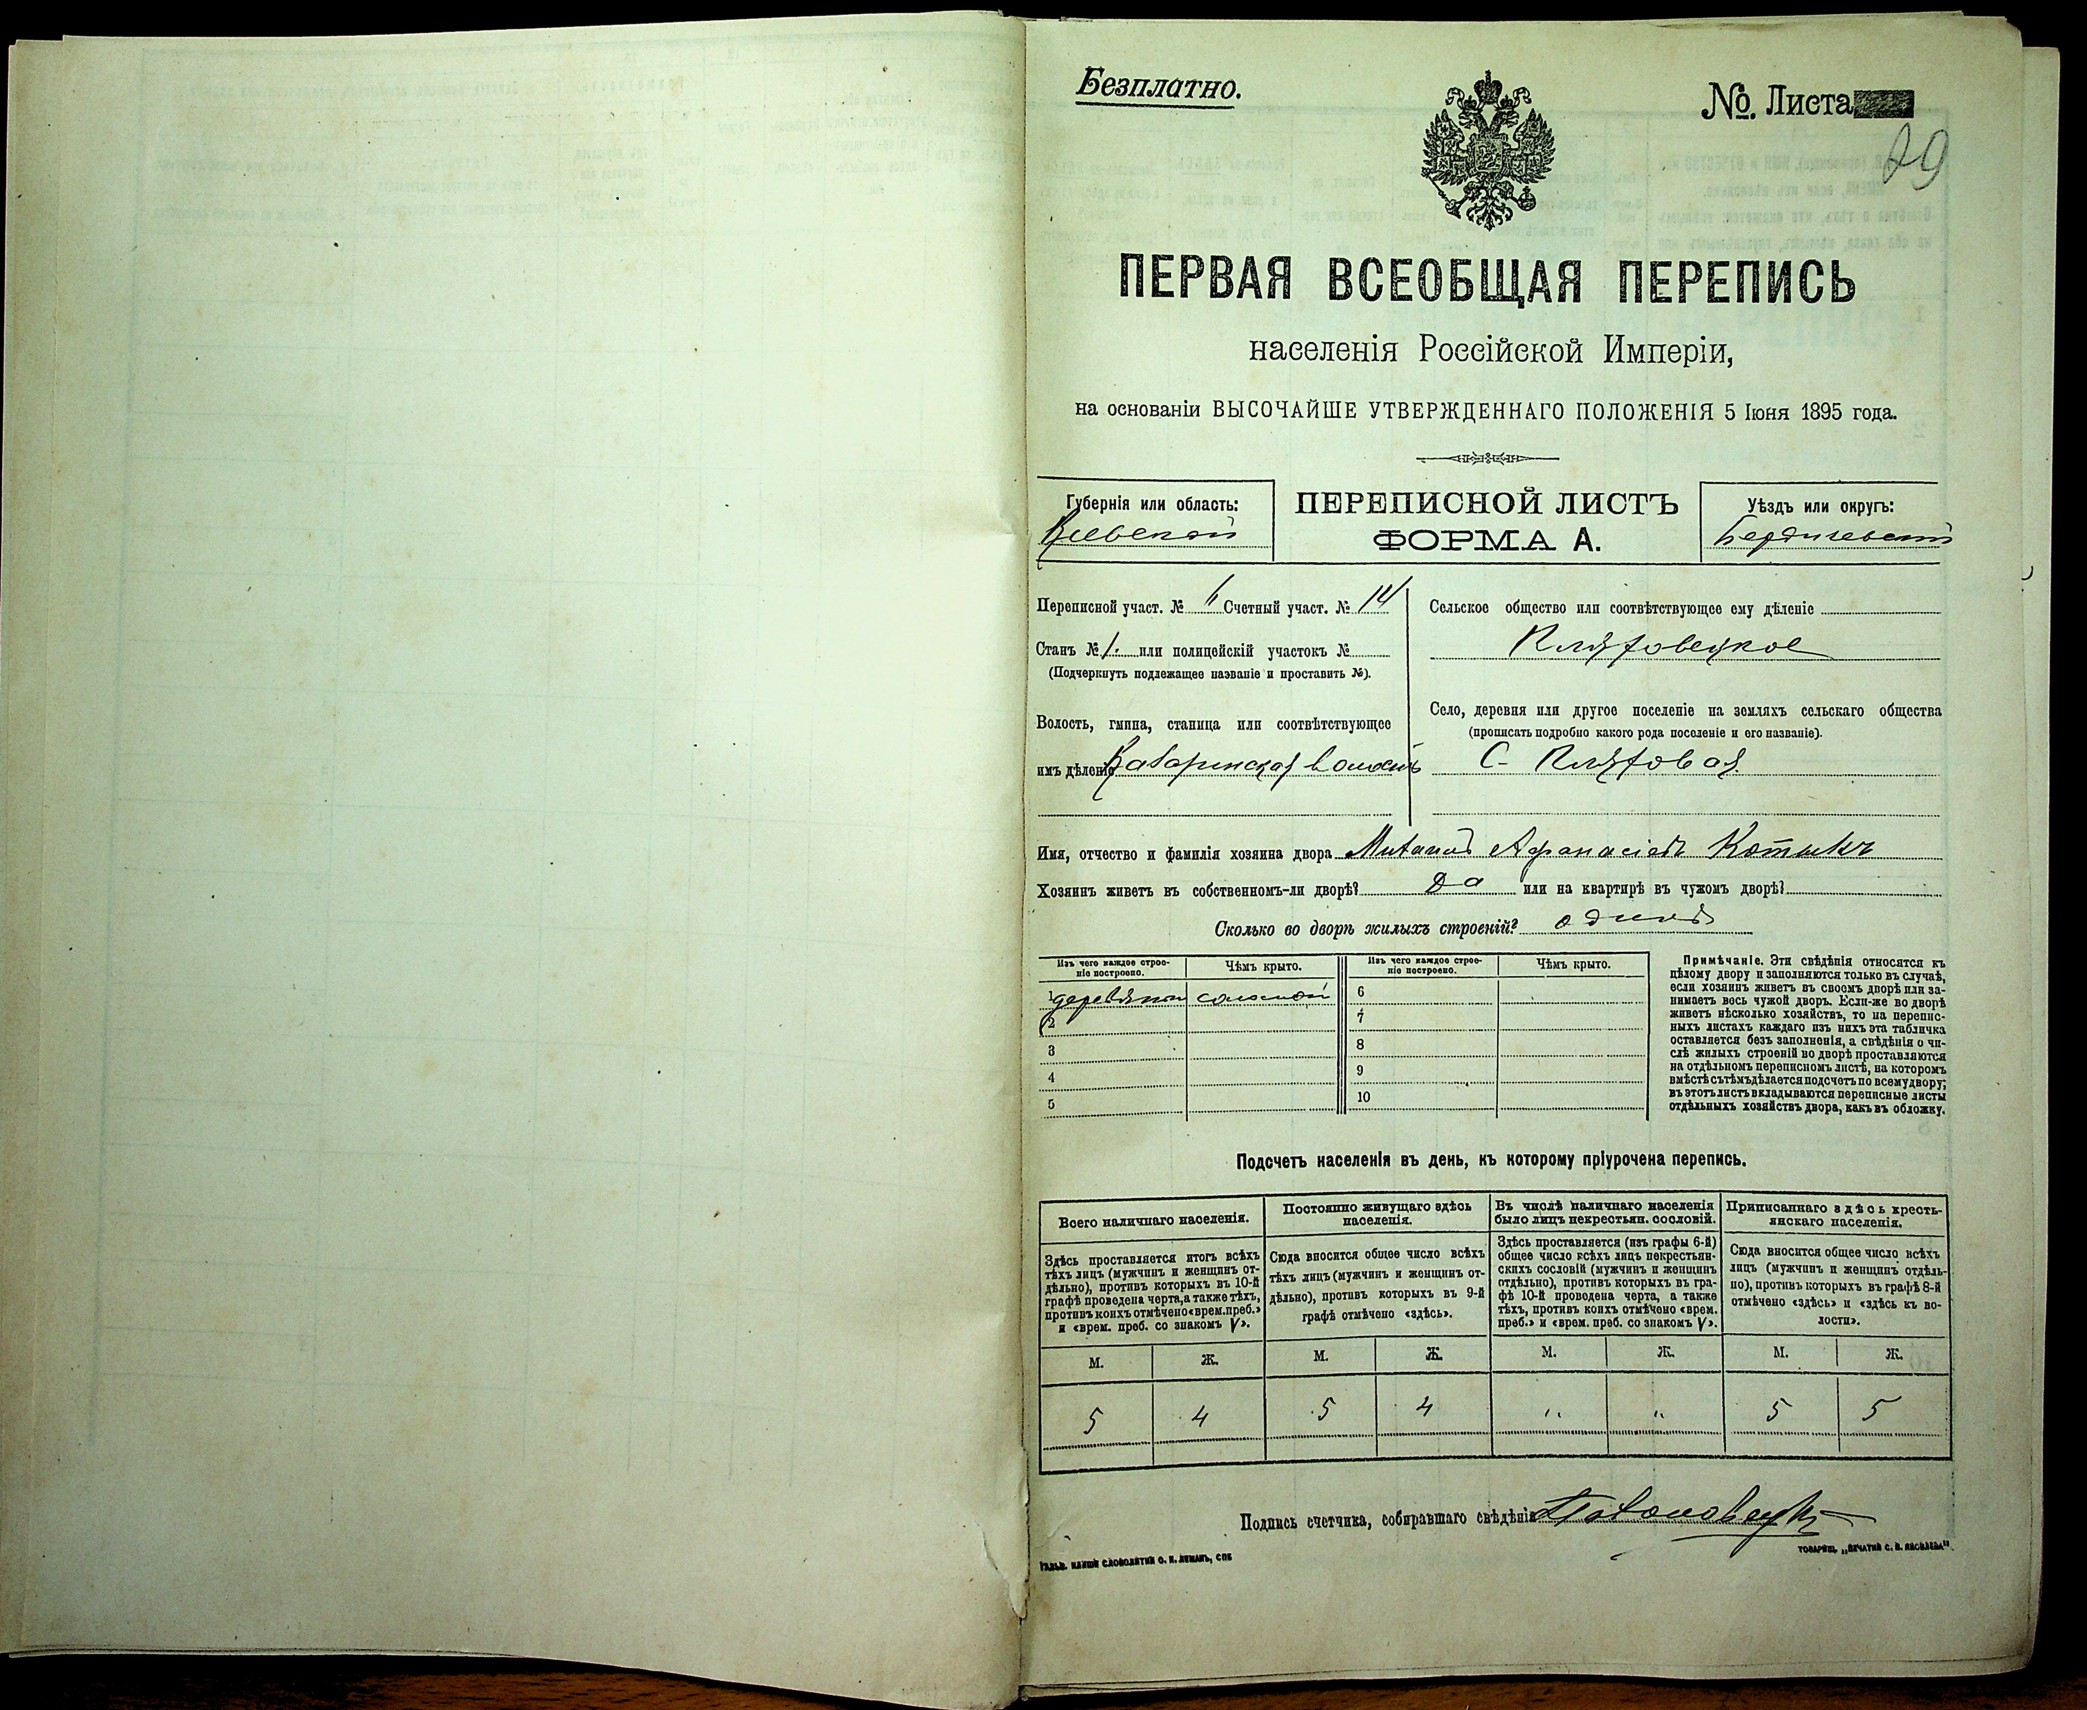 Безплатно.
№. Листа
29
ПЕРВАЯ ВСЕОБЩАЯ ПЕРЕПИСЬ
населенія Россійской Имперіи,
на основаніи ВЫСОЧАЙШЕ УТВЕРЖДЕННАГО ПОЛОЖЕНІЯ 5 Іюня 1895 года.
Губернія или область:
Кіевской
ПЕРЕПИСНОЙ ЛИСТЪ
ФОРМА А.
Уѣздъ или округъ:
Бердичевскій
Переписной участ. № 6 Счетный участ. № 14
Станъ № 1. или полицейскій участокъ №
(Подчеркнуть подлежащее названіе и проставить №).
Волость, гмина, станица или соотвѣтствующее
имъ дѣленіе волость
Сельское общество или соотвѣтствующее ему дѣленіе
Пляховецкое
Село, деревня или другое поселеніе на земляхъ сельскаго общества
(прописать подробно какого рода поселеніе и его названіе).
С. Пляховая
Имя, отчество и фамилія хозяина двора Михаилъ Афанасіевъ Котыкъ
Хозяинъ живетъ въ собственномъ-ли дворѣ? Да или на квартирѣ въ чужомъ дворѣ?
Сколько во дворѣ жилыхъ строеній? одинъ
Изъ чего каждое строе-
ніе построено.
Чѣмъ крыто.
Изъ чего каждое строе-
ніе построено.
Чѣмъ крыто.
1 соломой
2
3
4
5
6
7
8
9
10
Примѣчаніе. Эти свѣдѣнія относятся къ
цѣлому двору и заполняются только въ случаѣ,
если хозяинъ живетъ въ своемъ дворѣ или за-
нимаетъ весь чужой дворъ. Если-же во дворѣ
живетъ нѣсколько хозяйствъ, то на перепис-
ныхъ листахъ каждаго изъ нихъ эта табличка
оставляется безъ заполненія, а свѣдѣнія о чи-
слѣ жилыхъ строеній во дворѣ проставляются
на отдѣльномъ переписномъ листѣ, на которомъ
вмѣстѣ съ тѣмъ дѣлается подсчетъ по всему двору;
въ этотъ листъ вкладываются переписные листы
отдѣльныхъ хозяйствъ двора, какъ въ обложку.
Подсчетъ населенія въ день, къ которому пріурочена перепись.
Всего наличнаго населенія.
Здѣсь проставляется итогъ всѣхъ
тѣхъ лицъ (мужчинъ и женщинъ от-
дѣльно), противъ которыхъ въ 10-й
графѣ проведена черта, а также тѣхъ,
противъ коихъ отмѣчено «врем. преб.»
и «врем. преб. со знакомъ V».
Постоянно живущаго здѣсь
населенія.
Сюда вносится общее число всѣхъ
тѣхъ лицъ (мужчинъ и женщинъ от-
дѣльно), противъ которыхъ въ 9-й
графѣ отмѣчено «здѣсь».
Въ числѣ наличнаго населенія
было лицъ некрестьян. сословій.
Здѣсь проставляется (изъ графы 6-й)
общее число всѣхъ лицъ некрестьян-
скихъ сословій (мужчинъ и женщинъ
отдѣльно), противъ которыхъ въ гра-
фѣ 10-й проведена черта, а также
тѣхъ, противъ коихъ отмѣчено «врем.
преб.» и «врем. преб. со знакомъ V».
Приписаннаго здѣсь кресть-
янскаго населенія.
Сюда вносится общее число всѣхъ
лицъ (мужчинъ и женщинъ отдѣль-
но), противъ которыхъ въ графѣ 8-й
отмѣчено «здѣсь» и «здѣсь къ во-
лости».
М. Ж. М. Ж. М. Ж. М. Ж.
5 4 5 4 " " 5 5
Подпись счетчика, собиравшаго свѣдѣнія
ГАЛЬВ. КЛИШЕ СЛОВОЛИТНИ О. И. ЛЕМАНЪ, СПБ
ТОВАРИЩ. „ПЕЧАТНЯ С. П. ЯКОВЛЕВА"